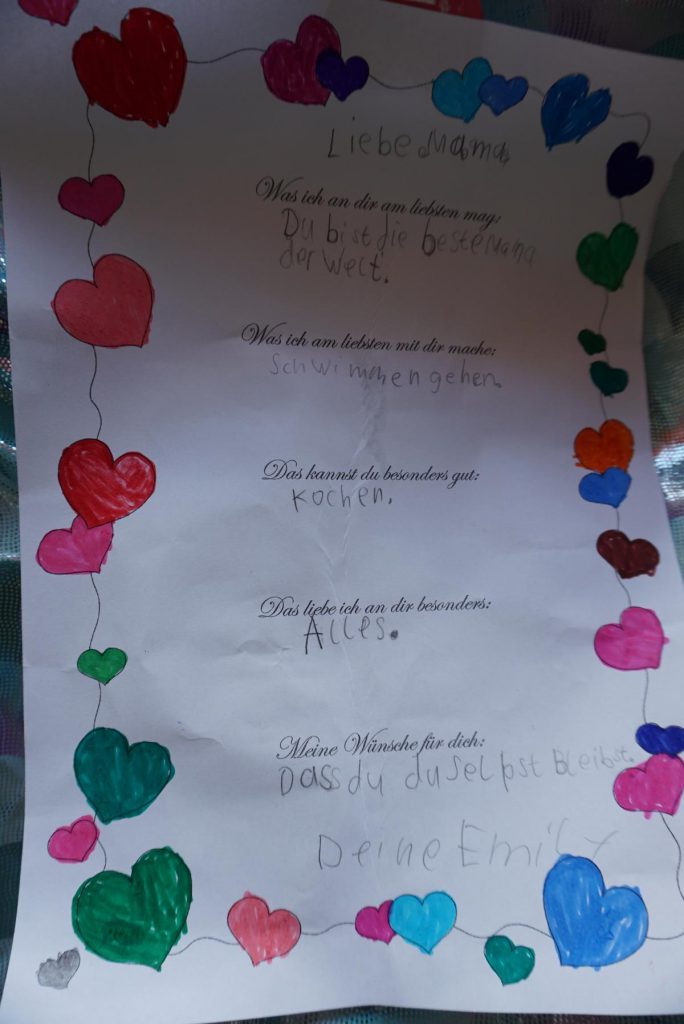 Liebe Mama,
Was ich an dir am liebsten mag:
Du bist die beste Mama
der Welt.
Was ich am liebsten mit dir mache:
Schwimmen gehen.
Das kannst du besonders gut:
Kochen.
Das liebe ich an dir besonders:
Alles.
Meine Wünsche für dich:
Dass du du selpst bleibst.
Deine Emily